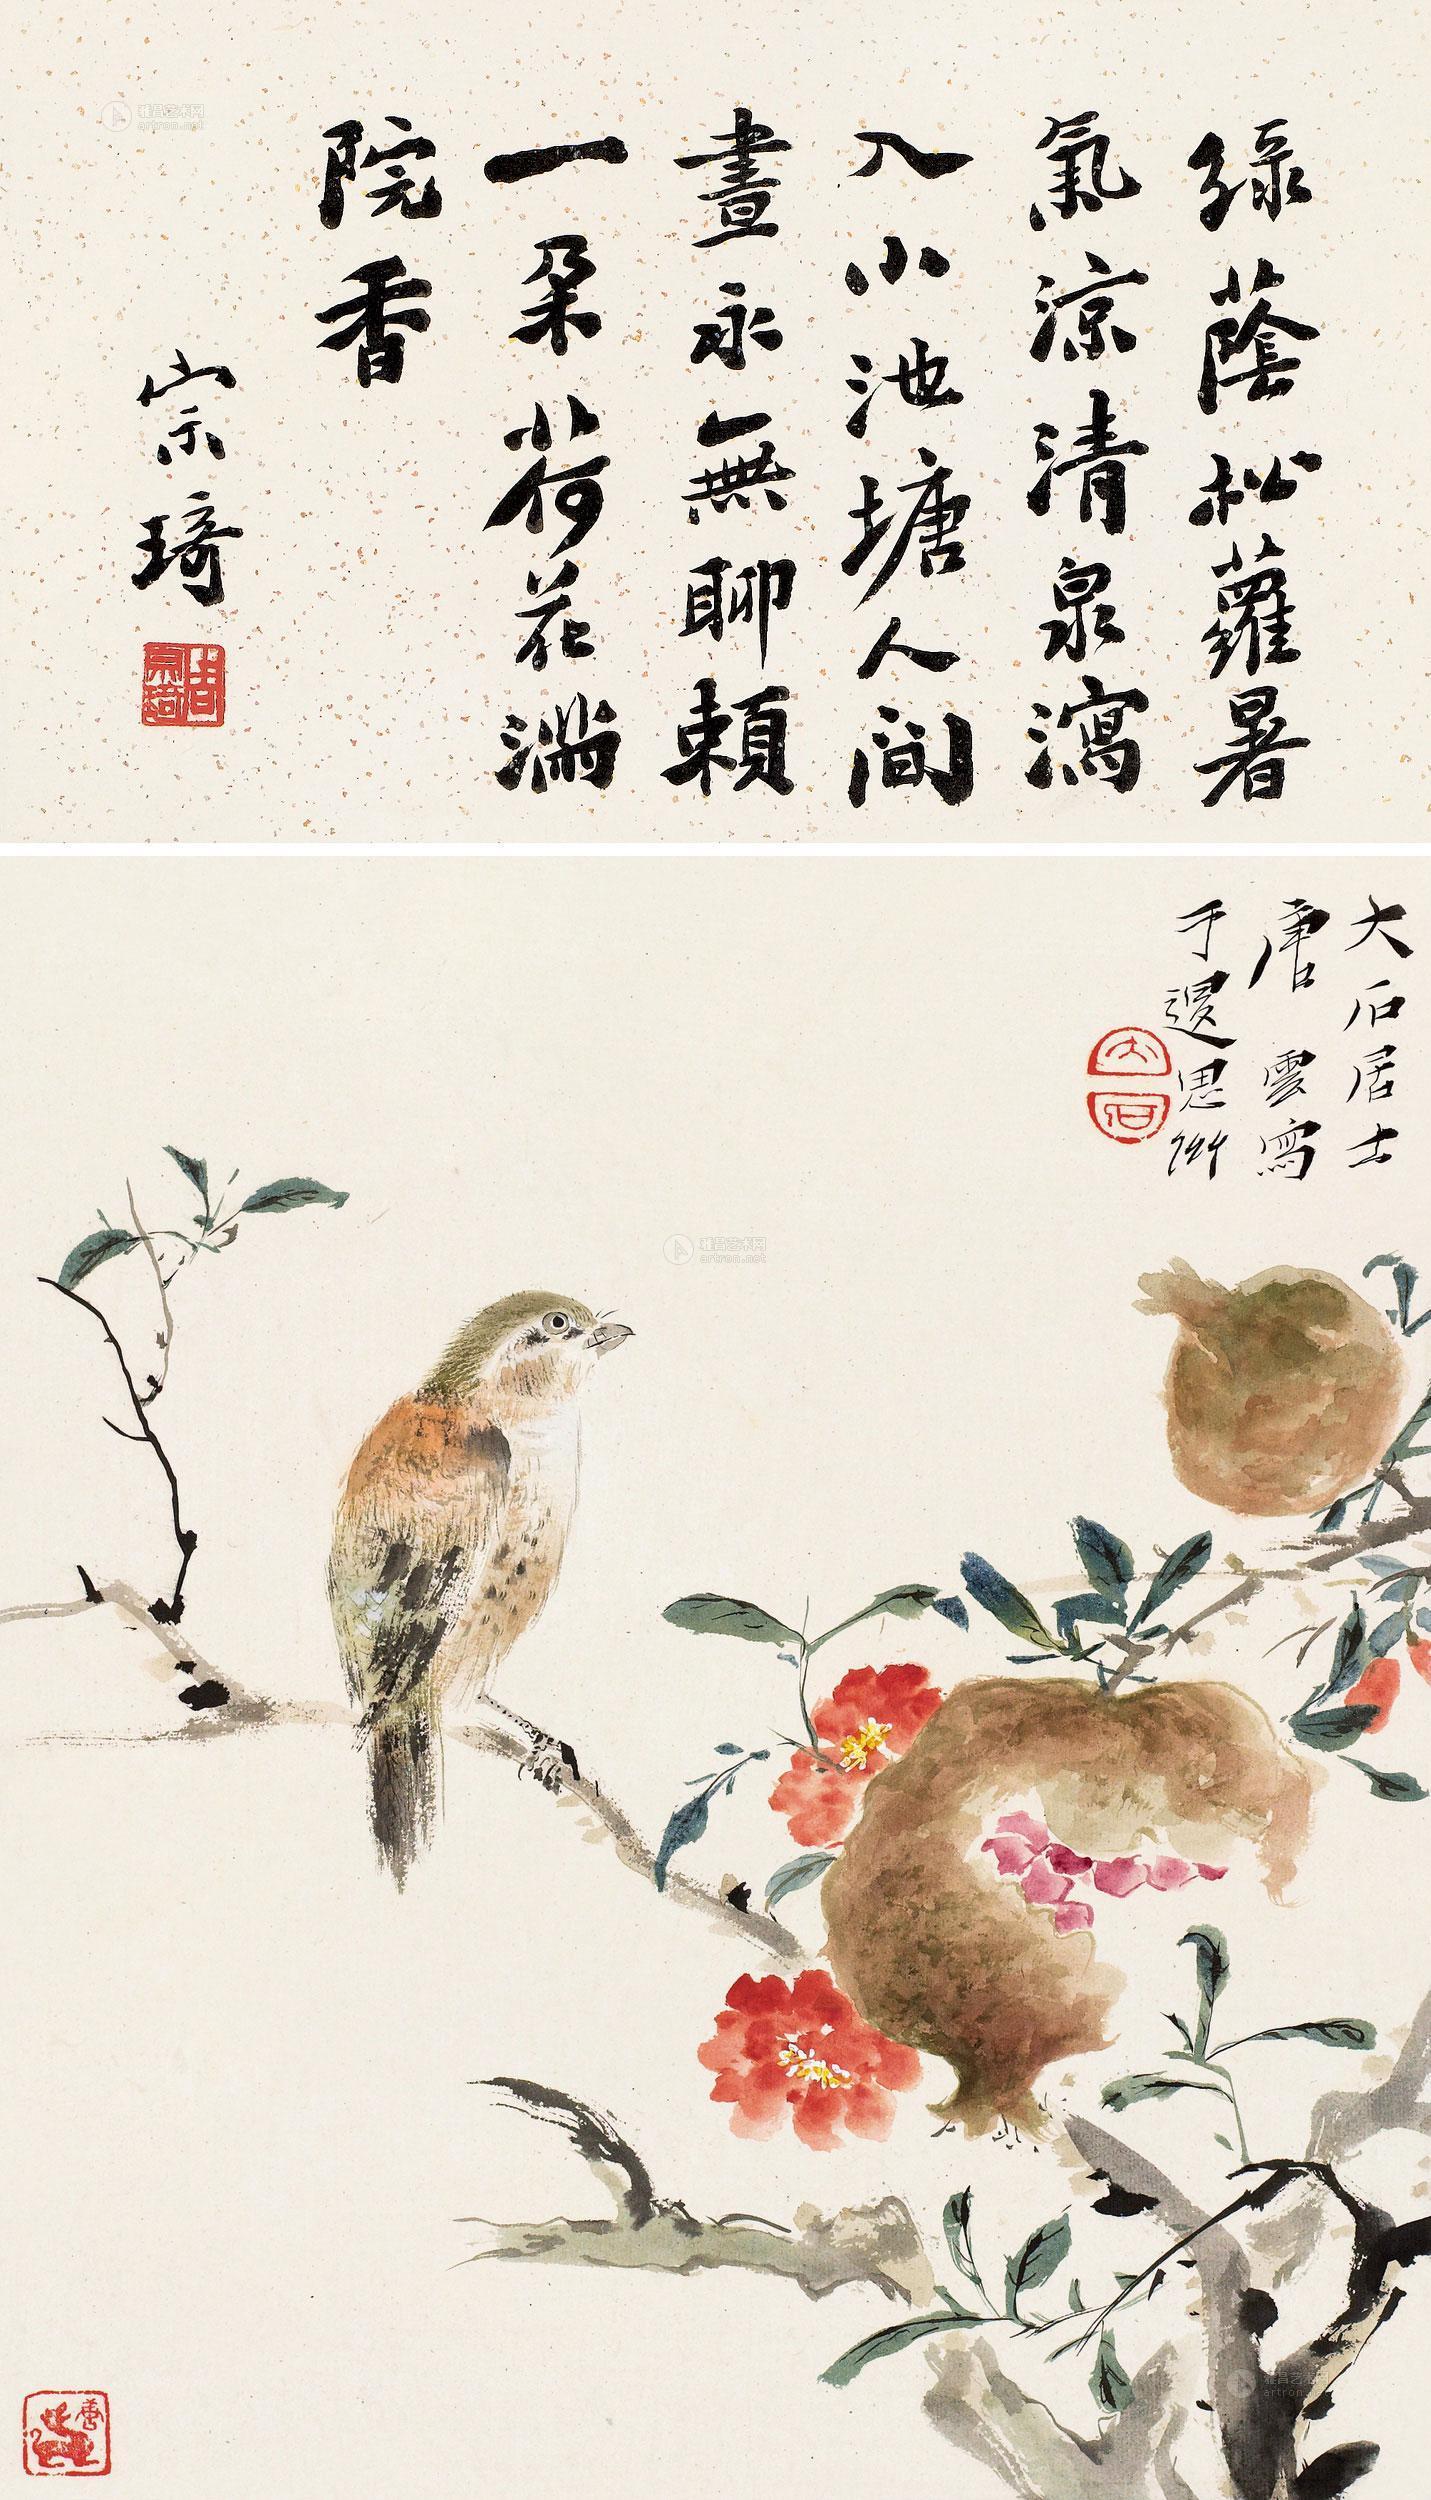 綠蔭松蘿暑
氣涼清泉瀉
入小池塘人間
晝永無聊賴
一朵荷花滿
院香
宗琦
周宗琦
大石居士
唐雲寫
于還思
大石
唐
雅昌艺术网
artron.net
雅昌艺术网
artron.net
雅昌艺术网
artron.net